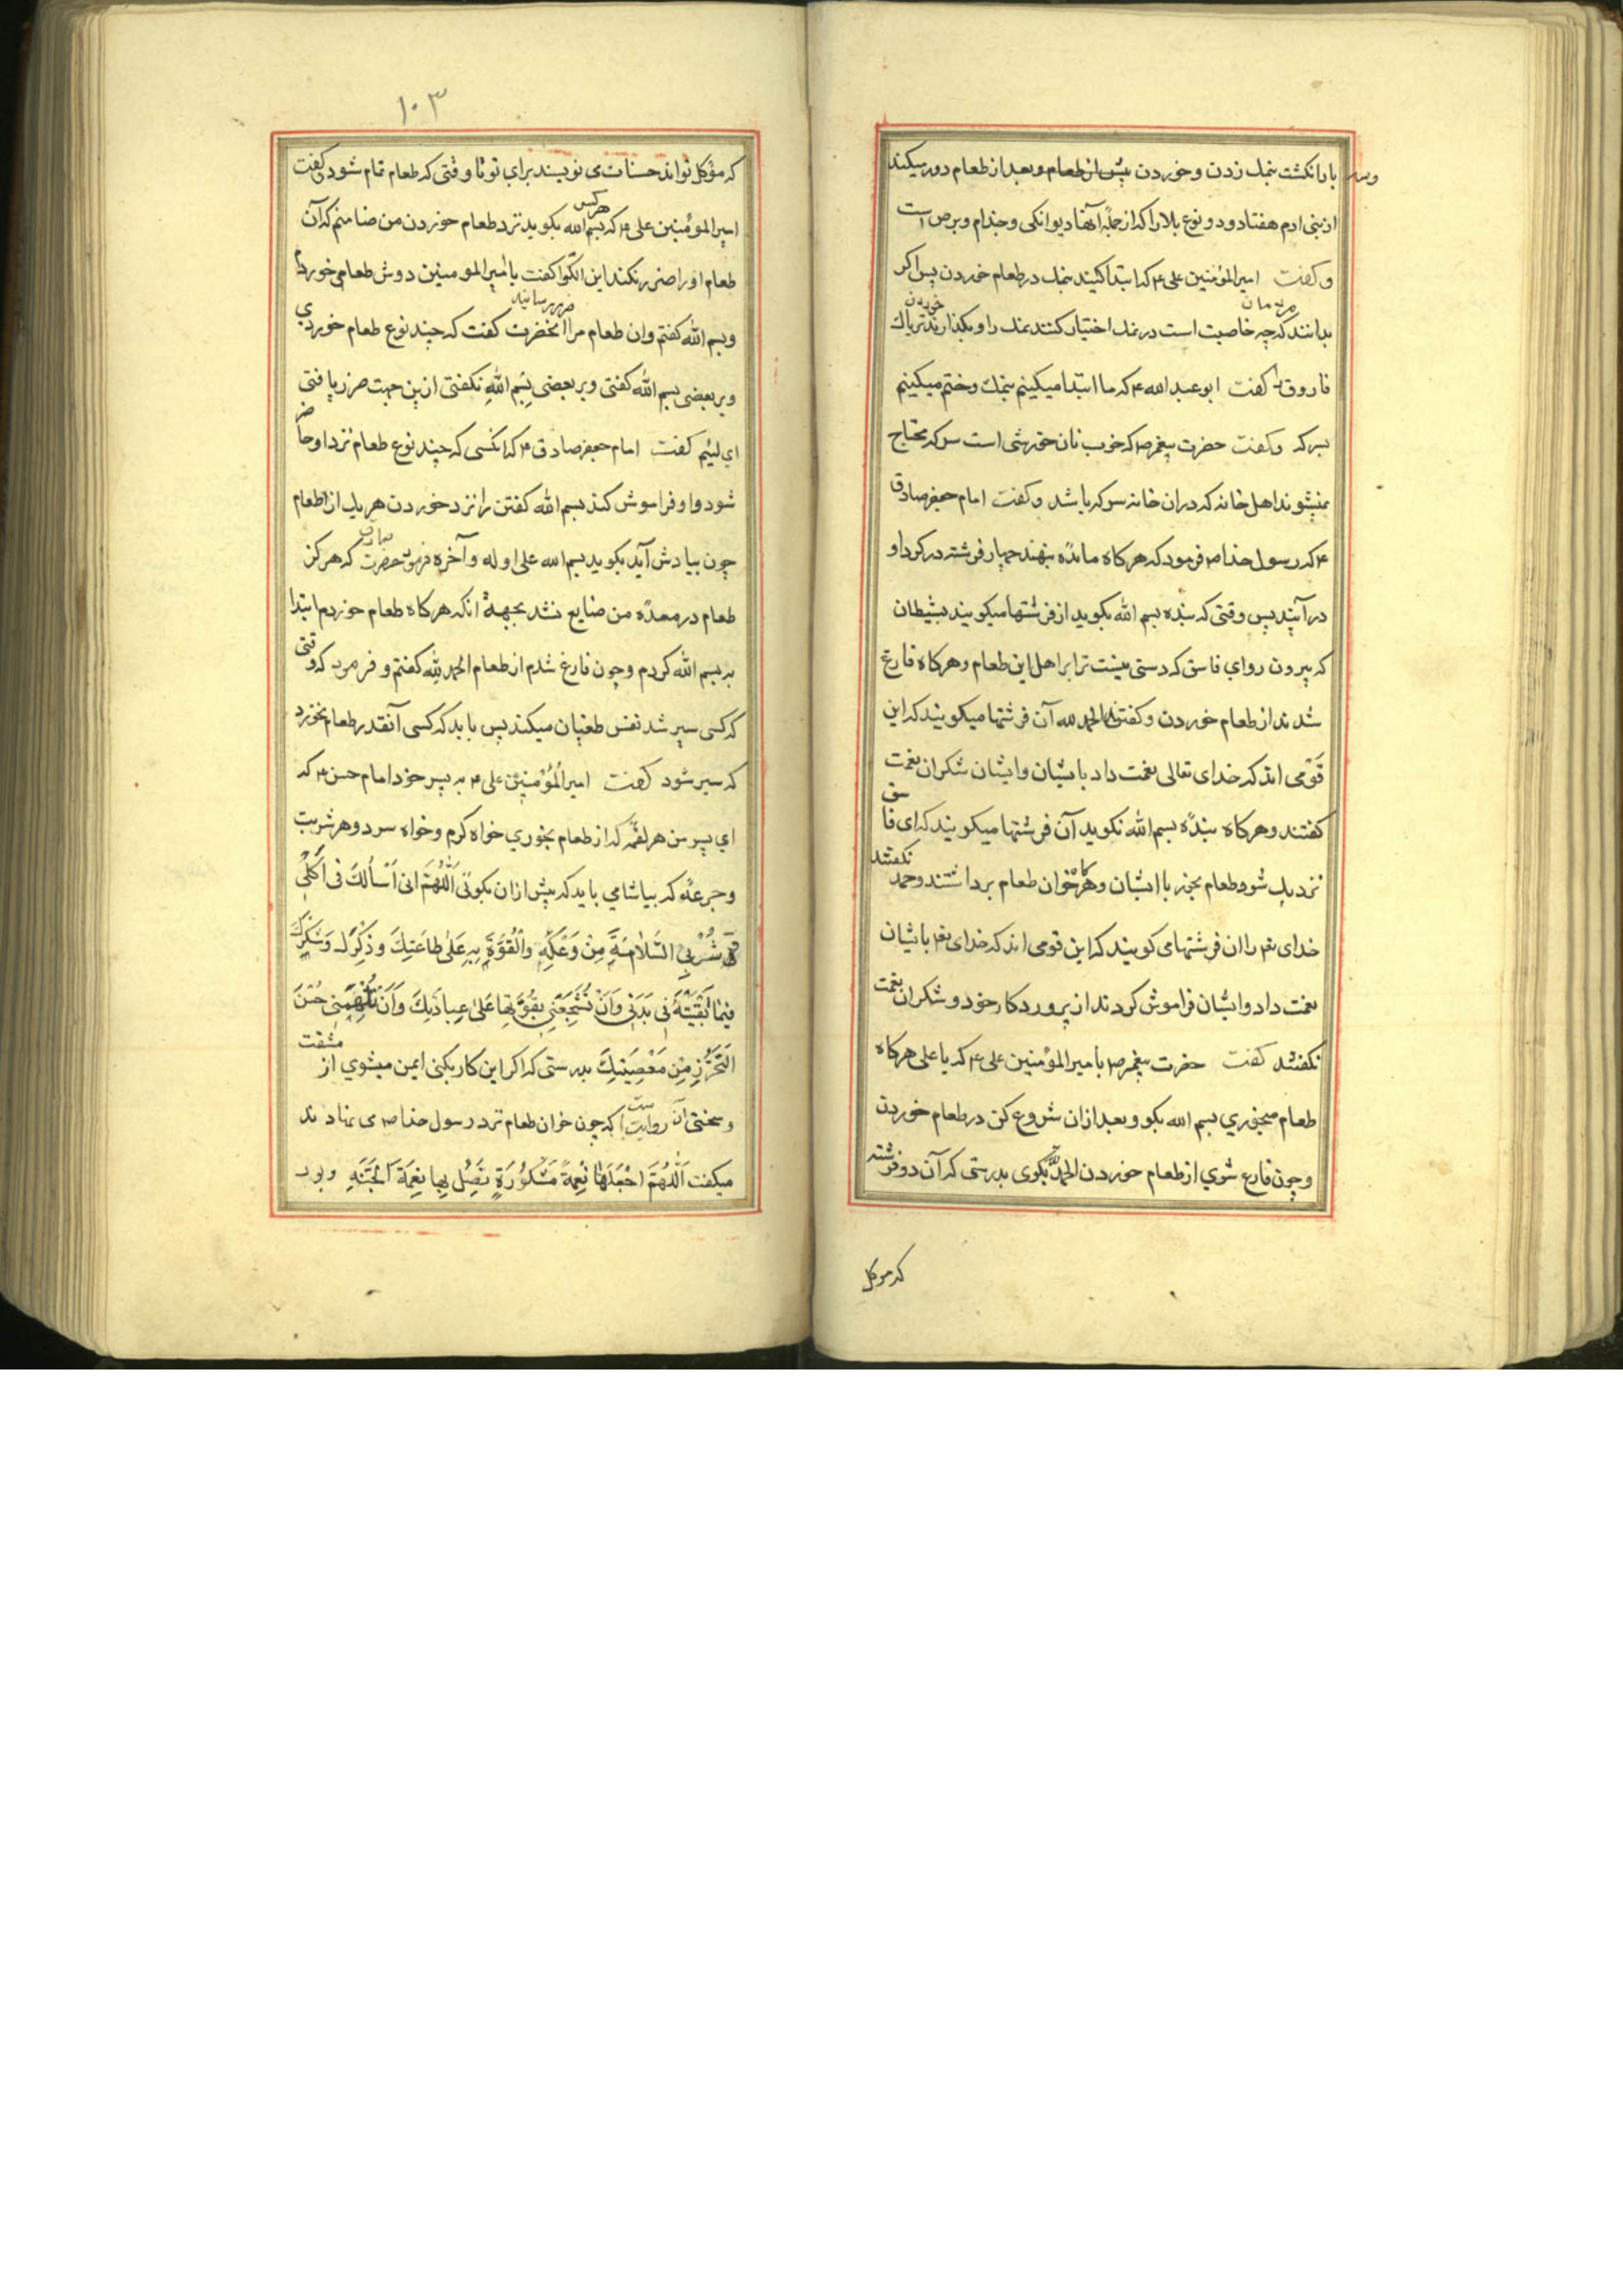 وسه بار انکشت بنمک زدن و خوردن پیش از طعام و بعد از طعام دور میکند
از بنی ادم هفتاد و دو نوع بلا را که از جملهٔ آنها دیوانکی و جذام و برص است
و کفت امیرالمؤمنین علی ۴ که ابتدا کنید بنمک در طعام خوردن پس اکر
مردمان
بدانند که چه خاصیت است در نمک اختیار کنند نمک را و بکذارند تریاک
خوردن
فاروق را کفت ابو عبد الله ۴ که ما ابتدا میکنیم بنمک و ختم میکنیم
بسرکه و کفت حضرت پیغمبر ص که خوب نان خورشی است سرکه محتاج
نمیشوند اهل خانه که دران خانه سرکه باشد و کفت امام جعفر صادق
۴ که رسول خدا ص فرمود که هرکاه مانده بنهند چهار فرشته در کرد او
در آیند پس وقتی که بنده بسم الله بکوید از فرشتها میکویند بشیطان
که بیرون رو ای فاسق که دستی نیست ترا بر اهل این طعام و هرکاه فارغ
شدند از طعام خوردن و کفتند الحمد لله آن فرشتها میکویند که این
قومی اند که خدای تعالی نعمت داد بایشان و ایشان شکران نعمت
کفتند و هرکاه بنده بسم الله نکوید آن فرشتها میکویند که ای فاسق
نزدیک شو و طعام بخور با ایشان و هرکاه خوان طعام برداشتند و حمد نکفتند
خدای تعم را ان فرشتها می کویند که این قومی اند که خدای تعم بایشان
نعمت داد و ایشان فراموش کردند از پروردکار خود و شکران نعمت
نکفتند کفت حضرت پیغمبر ص با میرالمؤمنین علی ۴ که یا علی هرکاه
طعام میخوری بسم الله بکو و بعد ازان شروع کن در طعام خوردن
و چون فارغ شوی از طعام خوردن الحمد لله بکوی بدرستی که آن دو فرشته
که موکل
۱۰۳
که مؤکل تواند حسنات می نویسند برای تو تا وقتی که طعام تمام شود کفت
امیرالمؤمنین علی ۴ که هرکس بسم الله بکوید نزد طعام خوردن من ضامنم که آن
طعام او را ضرر نکند ابن الکوا کفت یا امیرالمومنین دوش طعامی خوردم
و بسم الله کفتم و ان طعام مرا ضرر رسانید انحضرت کفت که چند نوع طعام خوردی
و بر بعضی بسم الله کفتی و بر بعضی بسم الله نکفتی ازین جهت ضرر یافتی
ای لئیم کفت امام جعفر صادق ۴ که انکسی که چند نوع طعام نزد او حاضر
شود و او فراموش کند بسم الله کفتن را نزد خوردن هریک از اطعام
چون بیادش آید بکوید بسم الله علی اوله و آخره فرموده حضرت صادق که هرکز
طعام در معدهٔ من ضایع نشد بجهة انکه هرکاه طعام خوردم ابتدا
به بسم الله کردم و چون فارغ شدم از طعام الحمد لله کفتم و فرمود که وقتی
که کسی سیر شد نفس طغیان میکند پس باید که کسی آنقدر طعام نخورد
که سیر شود کفت امیرالمؤمنین علی ۴ به پسر خود امام حسن ۴ که
ای پسر من هر لقمه که از طعام بخوری خواه کرم و خواه سرد و هر شربت
و جرعهٔ که بیاشامی باید که پیش ازان بکوئی اَللّٰهُمَّ انی اَسْأَلُكَ فی اَکْلی
وَ شُرْبِی السَّلٰامَةَ مِنْ وَعْکِهِ وَالْقُوَّةَ بِهِ عَلٰی طٰاعَتِكَ وَ ذِکْرِكَ وَ شُکْرِكَ
فیمٰا بَقَّیْتَهُ فی بَدَنی وَ اَنْ تُشَجِّعَنی بِقُوَّتِهٰا عَلٰی عِبادَتِكَ وَ اَنْ تُلْهِمَنی حُسْنَ
التَّحَرُّزِ مِنْ مَعْصِیَتِكَ بدرستی که اکر این کار بکنی ایمن میشوی از مشقت
و سختی ان روایت است که چون خوان طعام نزد رسول خدا ص می نهادند
میکفت اَللّٰهُمَّ اجْعَلْهٰا نِعْمَةً مَشْکُورَةً تَصِلُ بِهٰا نِعْمَةَ الْجَنَّةِ و بود